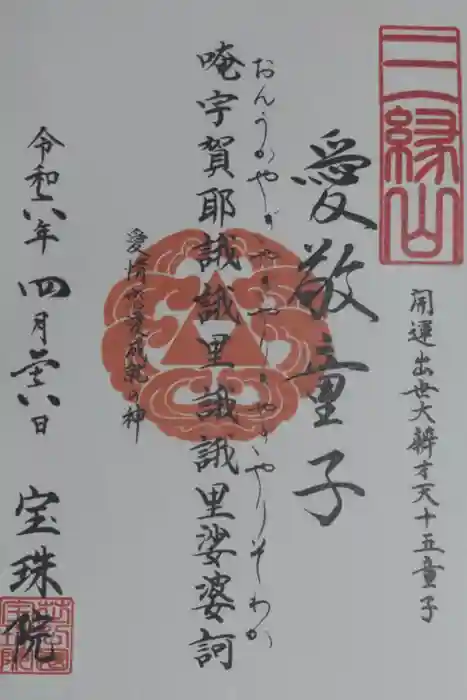 三縁山
開運出世大辨才天十五童子
愛敬童子
おんうがやぎゃやぎゃやりぎゃやぎゃやりそわか
唵宇賀耶誐誐里誐誐里娑婆訶
愛情
成就の神
令和六年四月廿八日
宝珠院